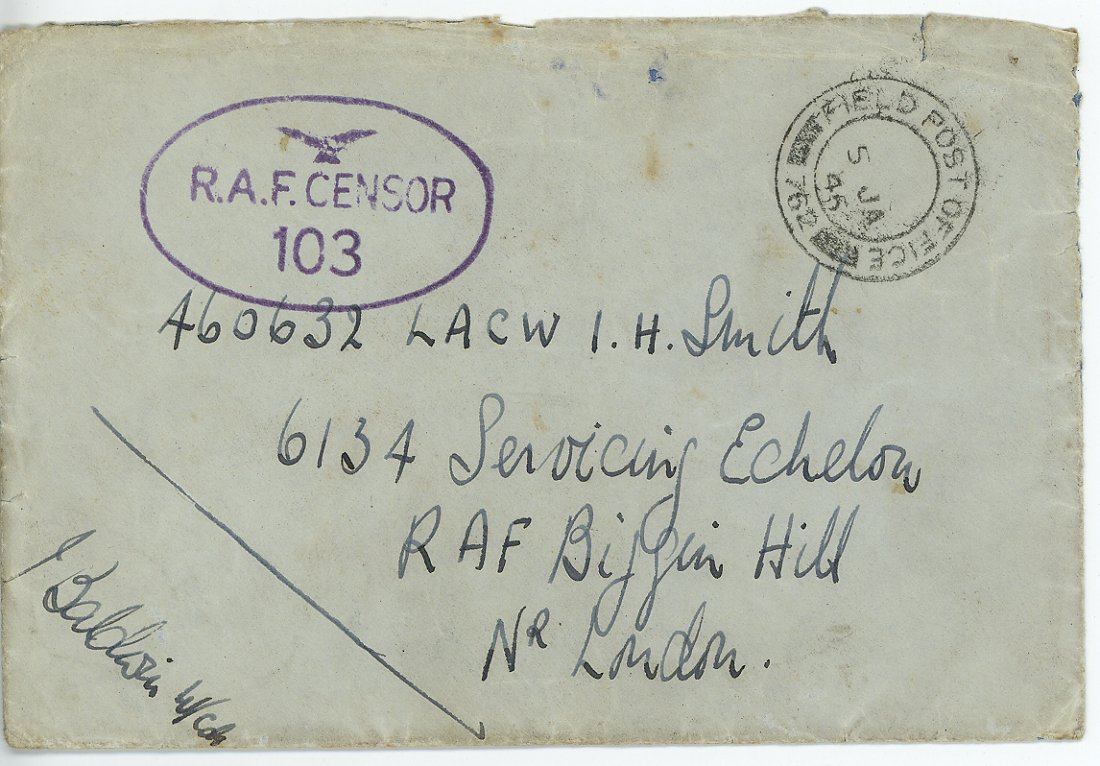 R.A.F. CENSOR
103
FIELD POST OFFICE
762
5 JA
45
460632 LACW I. H. Smith
6134 Servicing Echelon
RAF Biggin Hill
Nr London.
J Baldwin W/Cdr